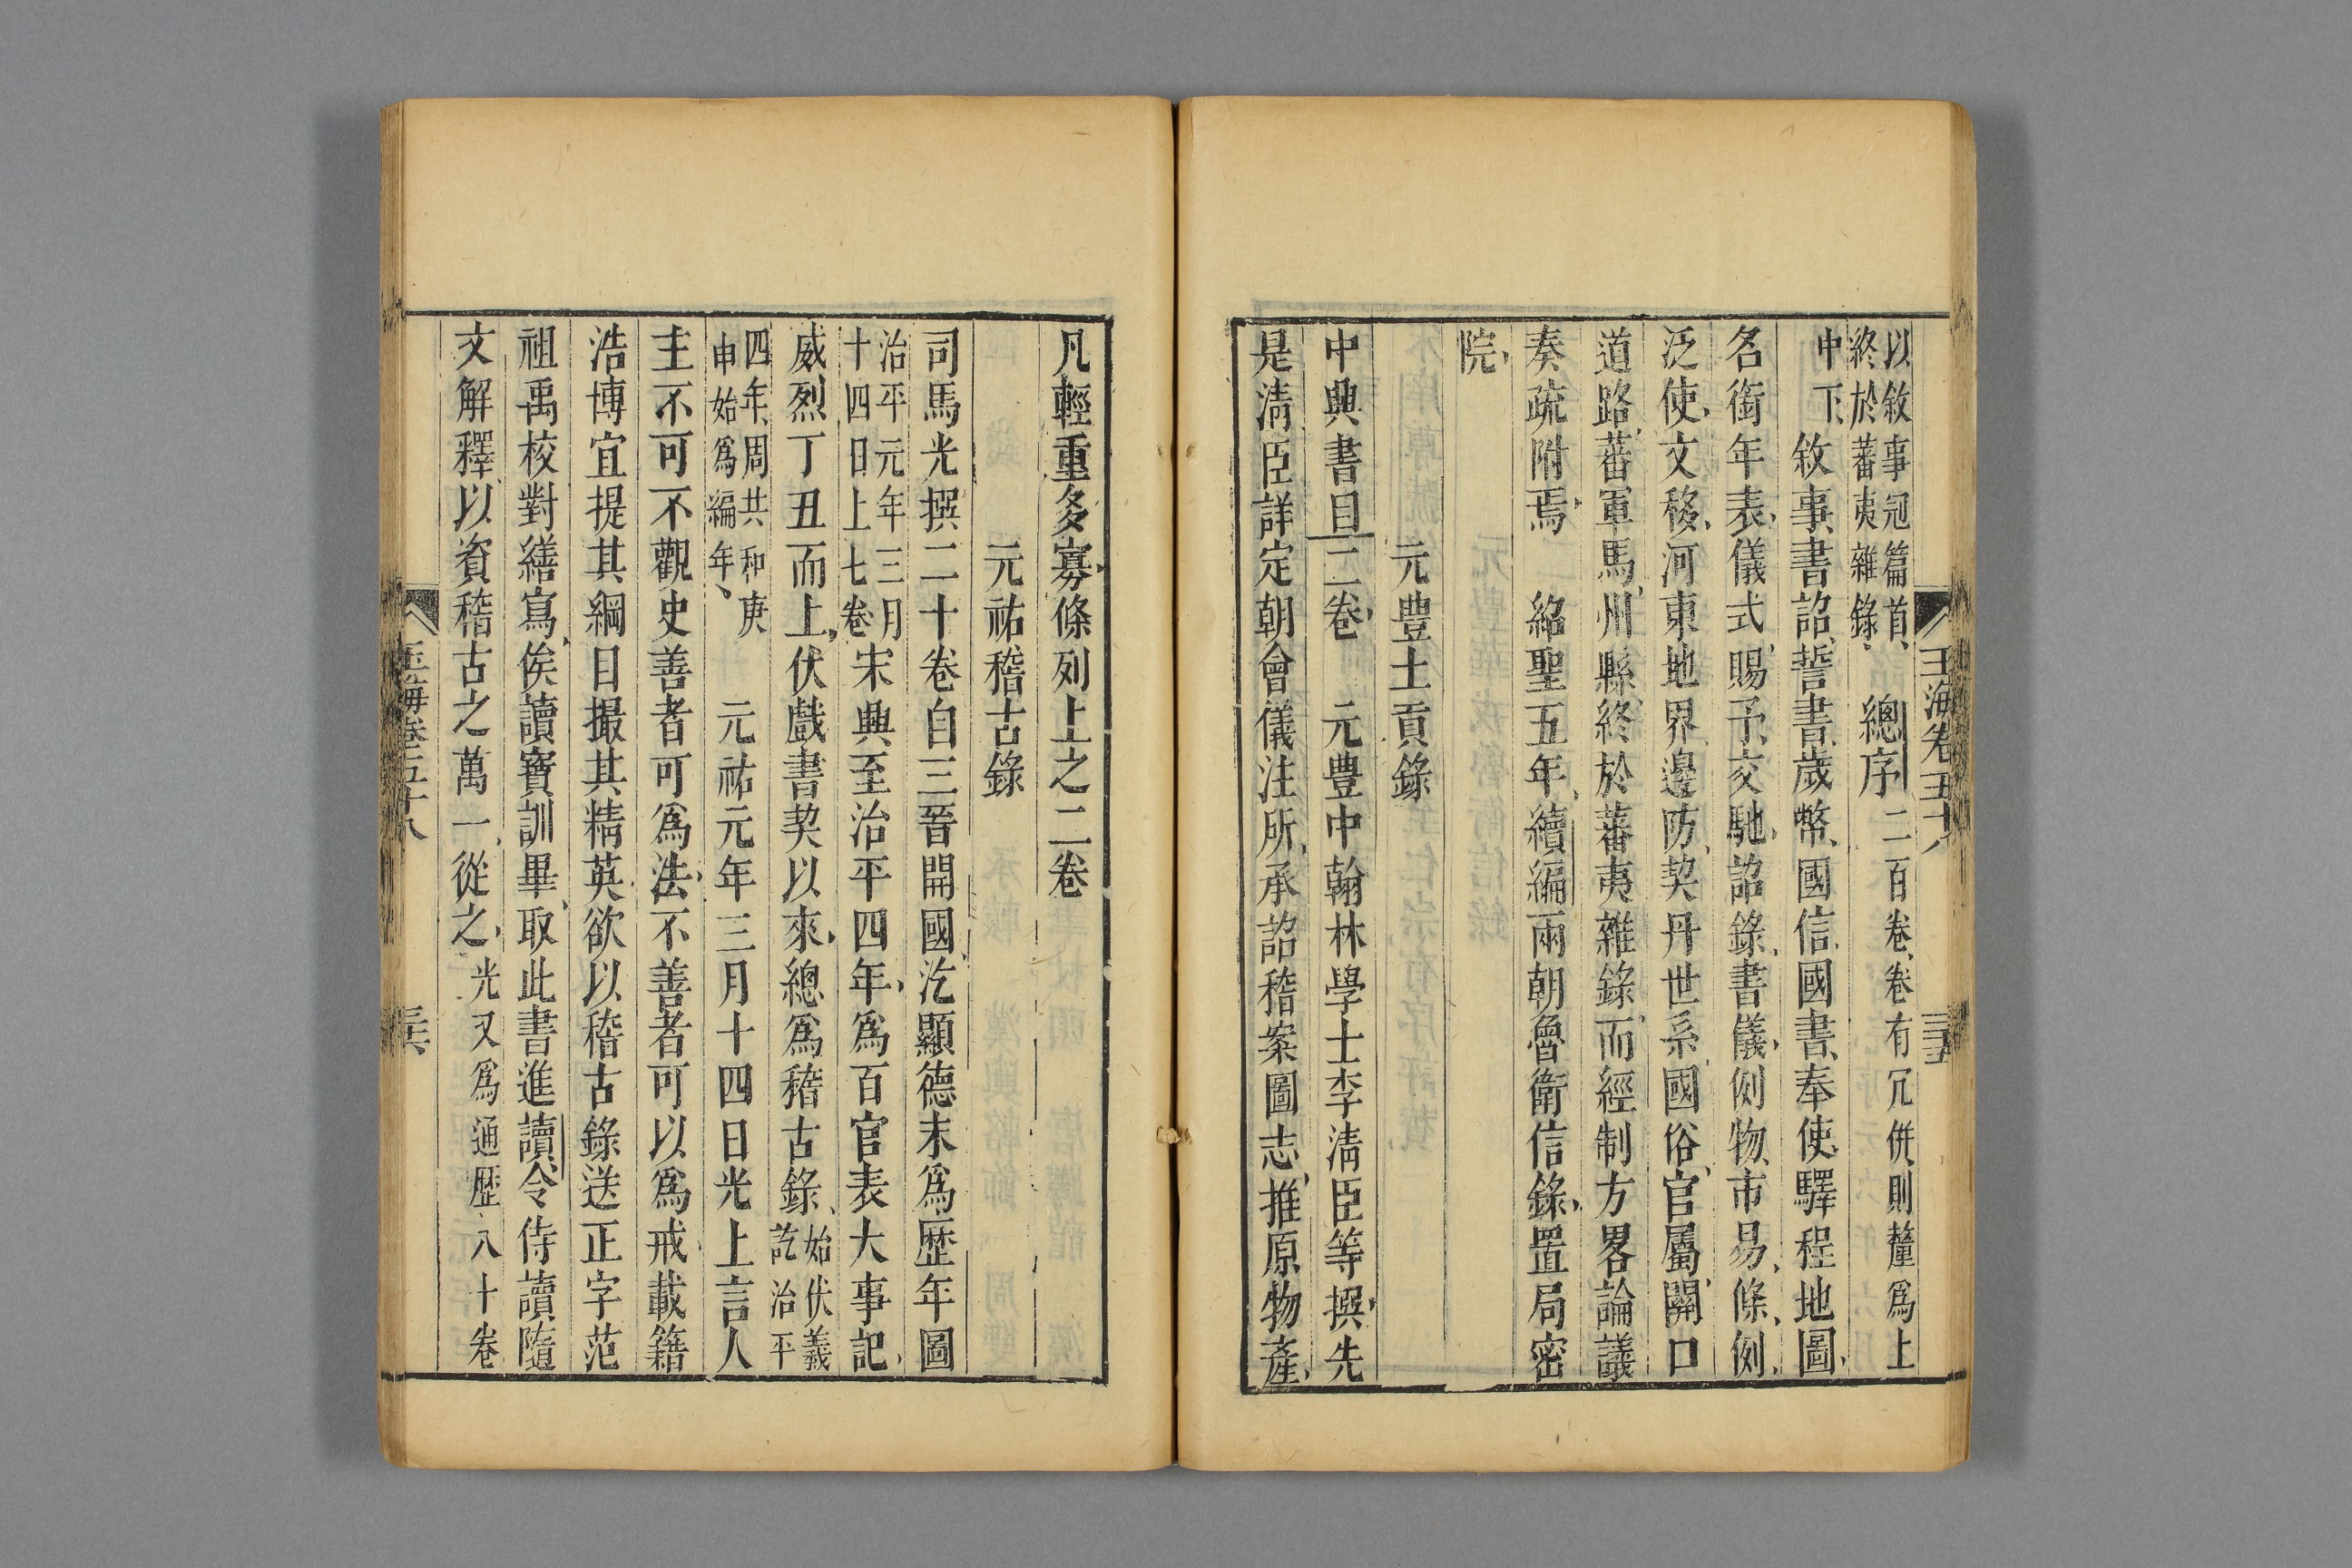 玉海卷五十八
三十五
以敘事冠篇首
終於蕃夷雜錄
總序二百卷卷有冗併則釐爲上
中下敘事書詔誓書歲幣國信國書奉使驛程地圖
名銜年表儀式賜予交馳詔錄書儀例物市易條例
泛使文移河東地界邊防契丹世系國俗官屬關口
道路蕃軍馬州縣終於蕃夷雜錄而經制方畧論議
奏疏附焉 紹聖五年續編兩朝魯衛信錄置局密
院
元豊土貢錄
中興書目二卷 元豊中翰林學士李淸臣等撰先
是淸臣詳定朝會儀注所承詔稽案圖志推原物產
凡輕重多寡條列上之二卷
元祐稽古錄
司馬光撰二十卷自三晉開國汔顯德末爲歷年圖
治平元年三月
十四日上七卷
宋興至治平四年爲百官表大事記
威烈丁丑而上伏戲書契以來總爲稽古錄
始伏羲
訖治平
四年周共和庚
申始爲編年
元祐元年三月十四日光上言人
主不可不觀史善者可爲法不善者可以爲戒載籍
浩博宜提其綱目撮其精英欲以稽古錄送正字范
祖禹校對繕寫俟讀寶訓畢取此書進讀令侍讀隨
文解釋以資稽古之萬一從之光又爲通歷八十卷
玉海卷五十八
三十六